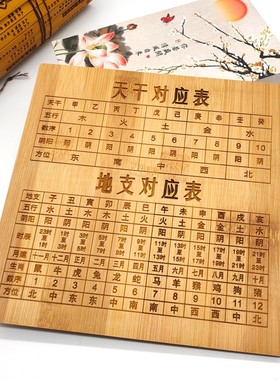 天干对应表
天干 甲 乙 丙 丁 戊 己 庚 辛 壬 癸
五行 木 火 土 金 水
数序 1 2 3 4 5 6 7 8 9 10
阴阳 阳 阴 阳 阴 阳 阴 阳 阴 阳 阴
方位 东 南 中 西 北
地支对应表
地支 子 丑 寅 卯 辰 巳 午 未 申 酉 戌 亥
五行 水 土 木 木 土 火 火 土 金 金 土 水
阴阳 阳 阴 阳 阴 阳 阴 阳 阴 阳 阴 阳 阴
时辰 23时至1时 1时至3时 3时至5时 5时至7时 7时至9时 9时至11时 11时至13时 13时至15时 15时至17时 17时至19时 19时至21时 21时至23时
月建 十一月 十二月 正月 二月 三月 四月 五月 六月 七月 八月 九月 十月
生肖 鼠 牛 虎 兔 龙 蛇 马 羊 猴 鸡 狗 猪
数序 1 2 3 4 5 6 7 8 9 10 11 12
方位 北 中 东 东 中 南 南 中 西 西 中 北